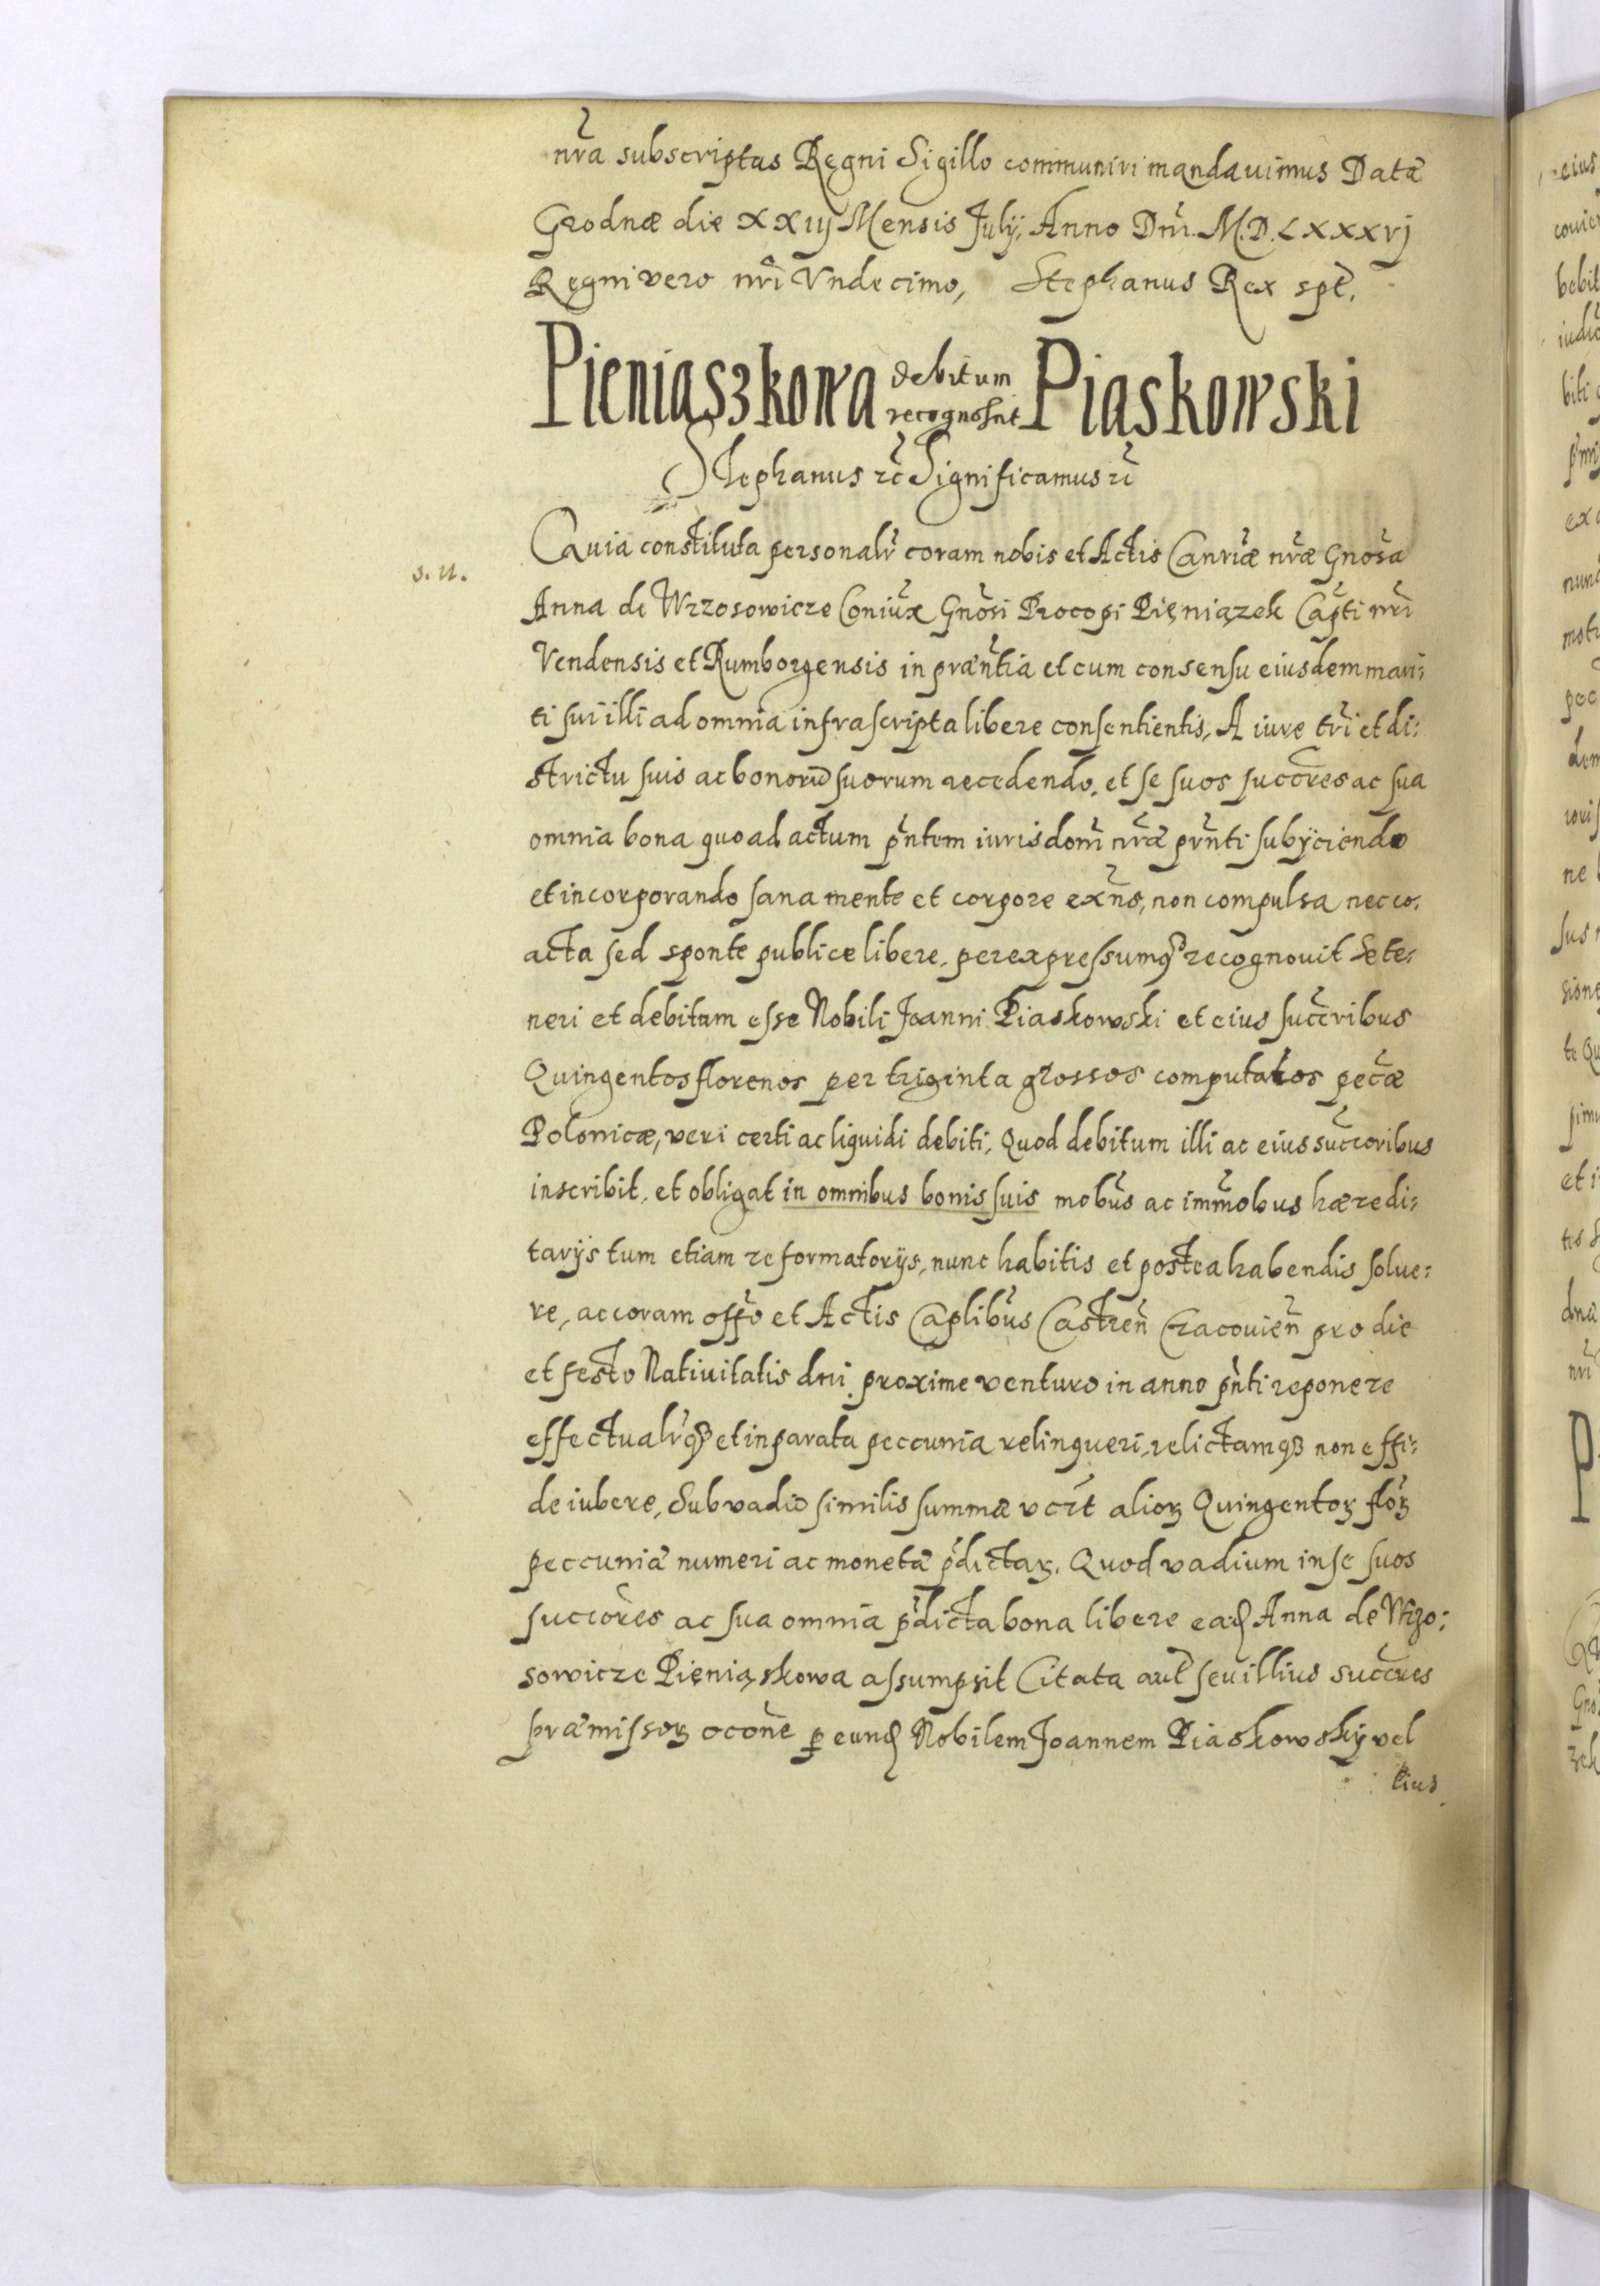 nr̃a subscriptas Regni Sigillo communiri mandauimus Datã
Grodnæ die XXIIJ Mensis Julÿ, Anno Dñi. M.D.LXXXVJ
Regni vero nr̃i Vndecimo, Stephanus Rex spt̃.
Pieniaszkowa debitum recognoscit Piaskowski
Stephanus ꝛc̃ Significamus ꝛc̃
s. n.
Quia constituta personalr̃ coram nobis et Actis Canr̃iæ nr̃æ Gnõsa
Anna de Wrzosowicze Coniũx Gnõsi Procopi Pięniązek Capti nr̃i
Vendensis et Rumborgensis in præñtia et cum consensu eiusdem mari:
ti sui illi ad omnia infrascripta libere consentientis, A iure tr̃i et di:
strictu suis ac bonorũ suorum recedendo, et se suos succr̃es ac sua
omnia bona quoad actum pñtem iurisdoñi nr̃æ prñti subÿciendo
et incorporando sana mente et corpore exñs, non compulsa nec co.
acta sed sponte publice libere, perexpressumqꝫ recognouit Se te:
neri et debitam esse Nobili Joanni Piaskowski et eius succr̃ibus
Quingentos florenos per triginta grossos computatos pec̃æ
Polonicæ, veri certi ac liquidi debiti, Quod debitum illi ac eius succoribus
inscribit, et obligat in omnibus bonis suis mobũs ac imm̃obus hæredi:
tarÿs tum etiam reformatorÿs, nunc habitis et postea habendis solue:
re, ac coram offõ et Actis Caplibũs Castreñ Cracouieñ pro die
et festo Natiuitatis dni proxime venturo in anno pñti reponere
effectualr̃qꝫ et in parata peccunia relinqueri, relictamqꝫ non effi:
de iubere, Sub vadio similis summæ vꝛ̃t alioꝝ Quingentoꝝ flõꝝ
peccuniã numeri ac monetã p̃dictaꝝ. Quod vadium in se suos
succõres ac sua omnia p̃dicta bona libere eadꝫ Anna de Wrzo:
sowicze Pięniąskowa assumpsit Citata aut̃ seu illius succr̃es
præmissoꝝ occõne ꝑ eundꝫ Nobilem Joannem Piaskowskÿ vel
eius